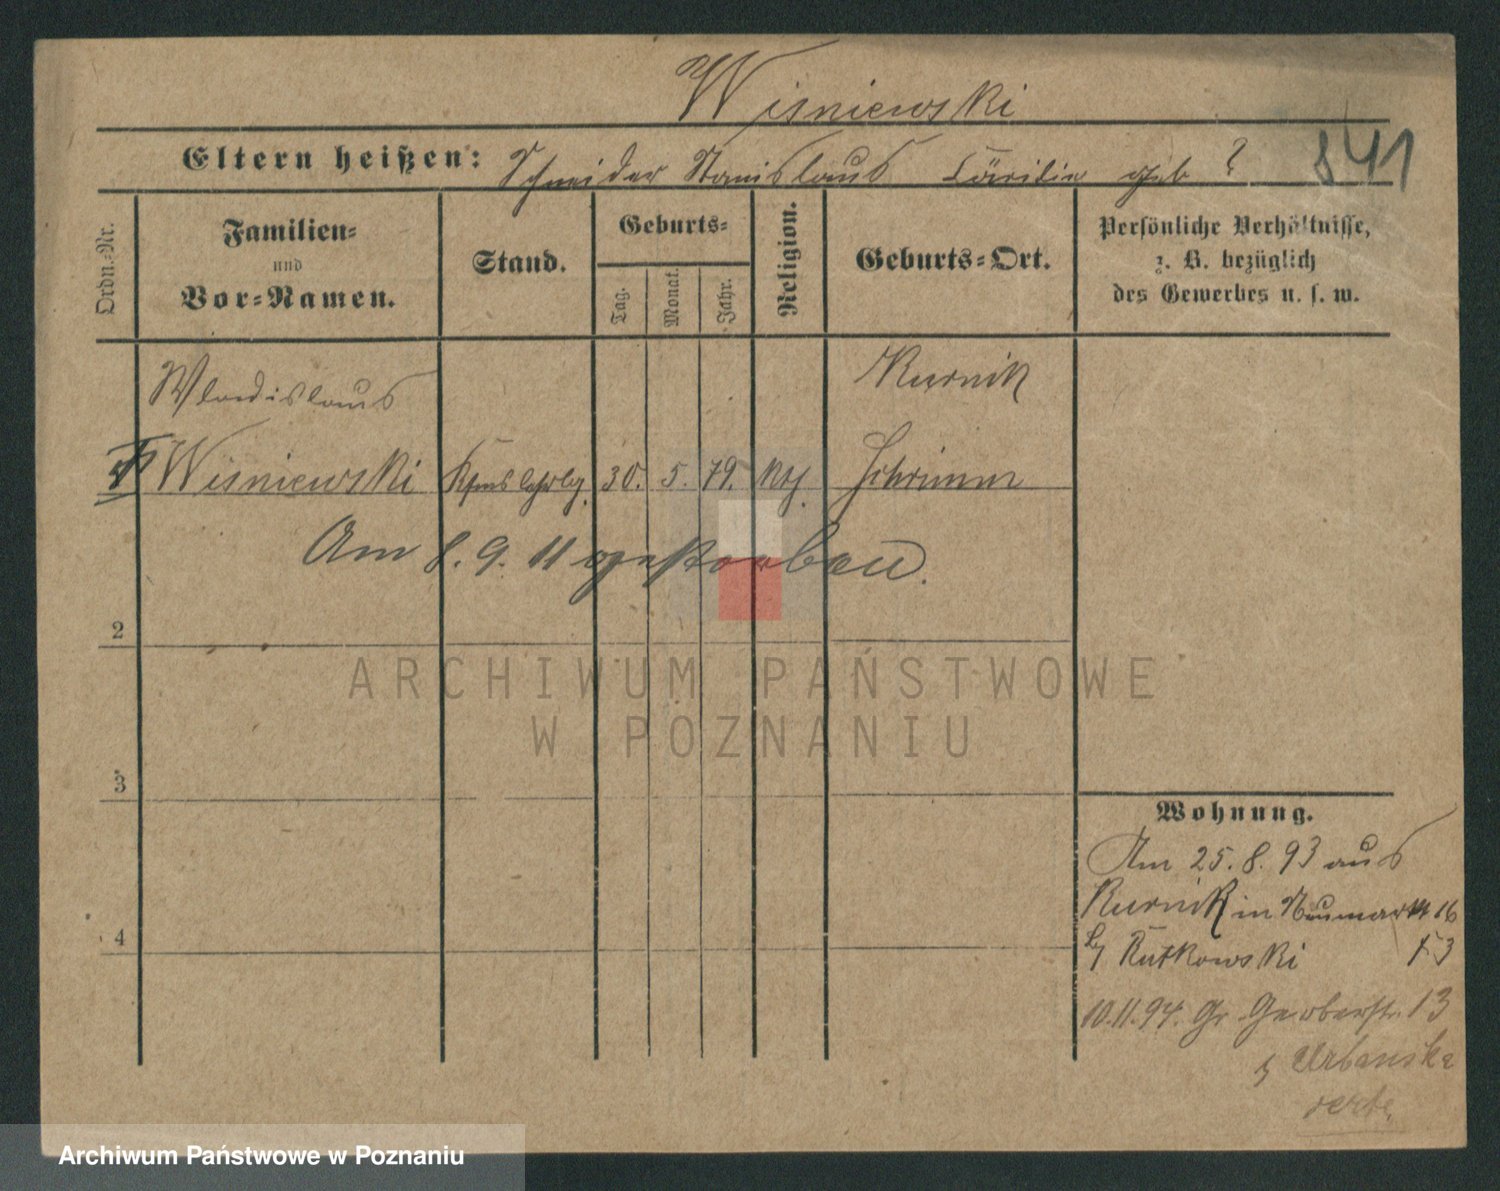 Wisniewski
Eltern heißen: Schneider Stanislaus Cäcilie geb ?
841
Ordn.-Nr.
Familien-
und
Vor-Namen.
Stand.
Geburts-
Tag.
Monat.
Jahr.
Religion.
Geburts-Ort.
Persönliche Verhältnisse,
z. B. bezüglich
des Gewerbes u. s. w.
Wladislaus
Kurnik
Wisniewski 30. 5. 79. kth. Schrimm
Am 8. 9. 11 gestorben.
2
ARCHIWUM PAŃSTWOWE
W POZNANIU
3
Wohnung.
Am 25. 8. 93 aus
Kurnik in Neumarkt 16
b/ Rutkowski
4
10.11.94. Gr Gerberstr. 13
b Urbanska
Archiwum Państwowe w Poznaniu